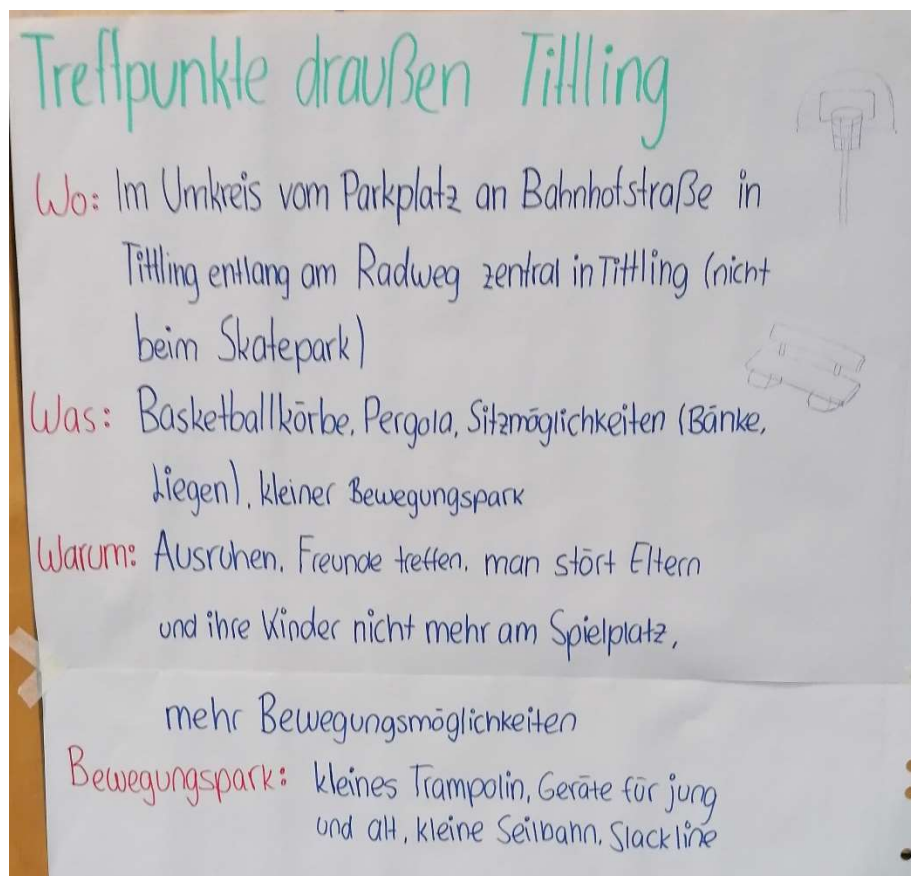 Treffpunkte draußen Tittling
Wo: Im Umkreis vom Parkplatz an Bahnhofstraße in
Tittling entlang am Radweg zentral in Tittling (nicht
beim Skatepark)
Was: Basketballkörbe, Pergola, Sitzmöglichkeiten (Bänke,
Liegen), kleiner Bewegungspark
Warum: Ausruhen, Freunde treffen, man stört Eltern
und ihre Kinder nicht mehr am Spielplatz,
mehr Bewegungsmöglichkeiten
Bewegungspark: kleines Trampolin, Geräte für jung
und alt, kleine Seilbahn, Slackline